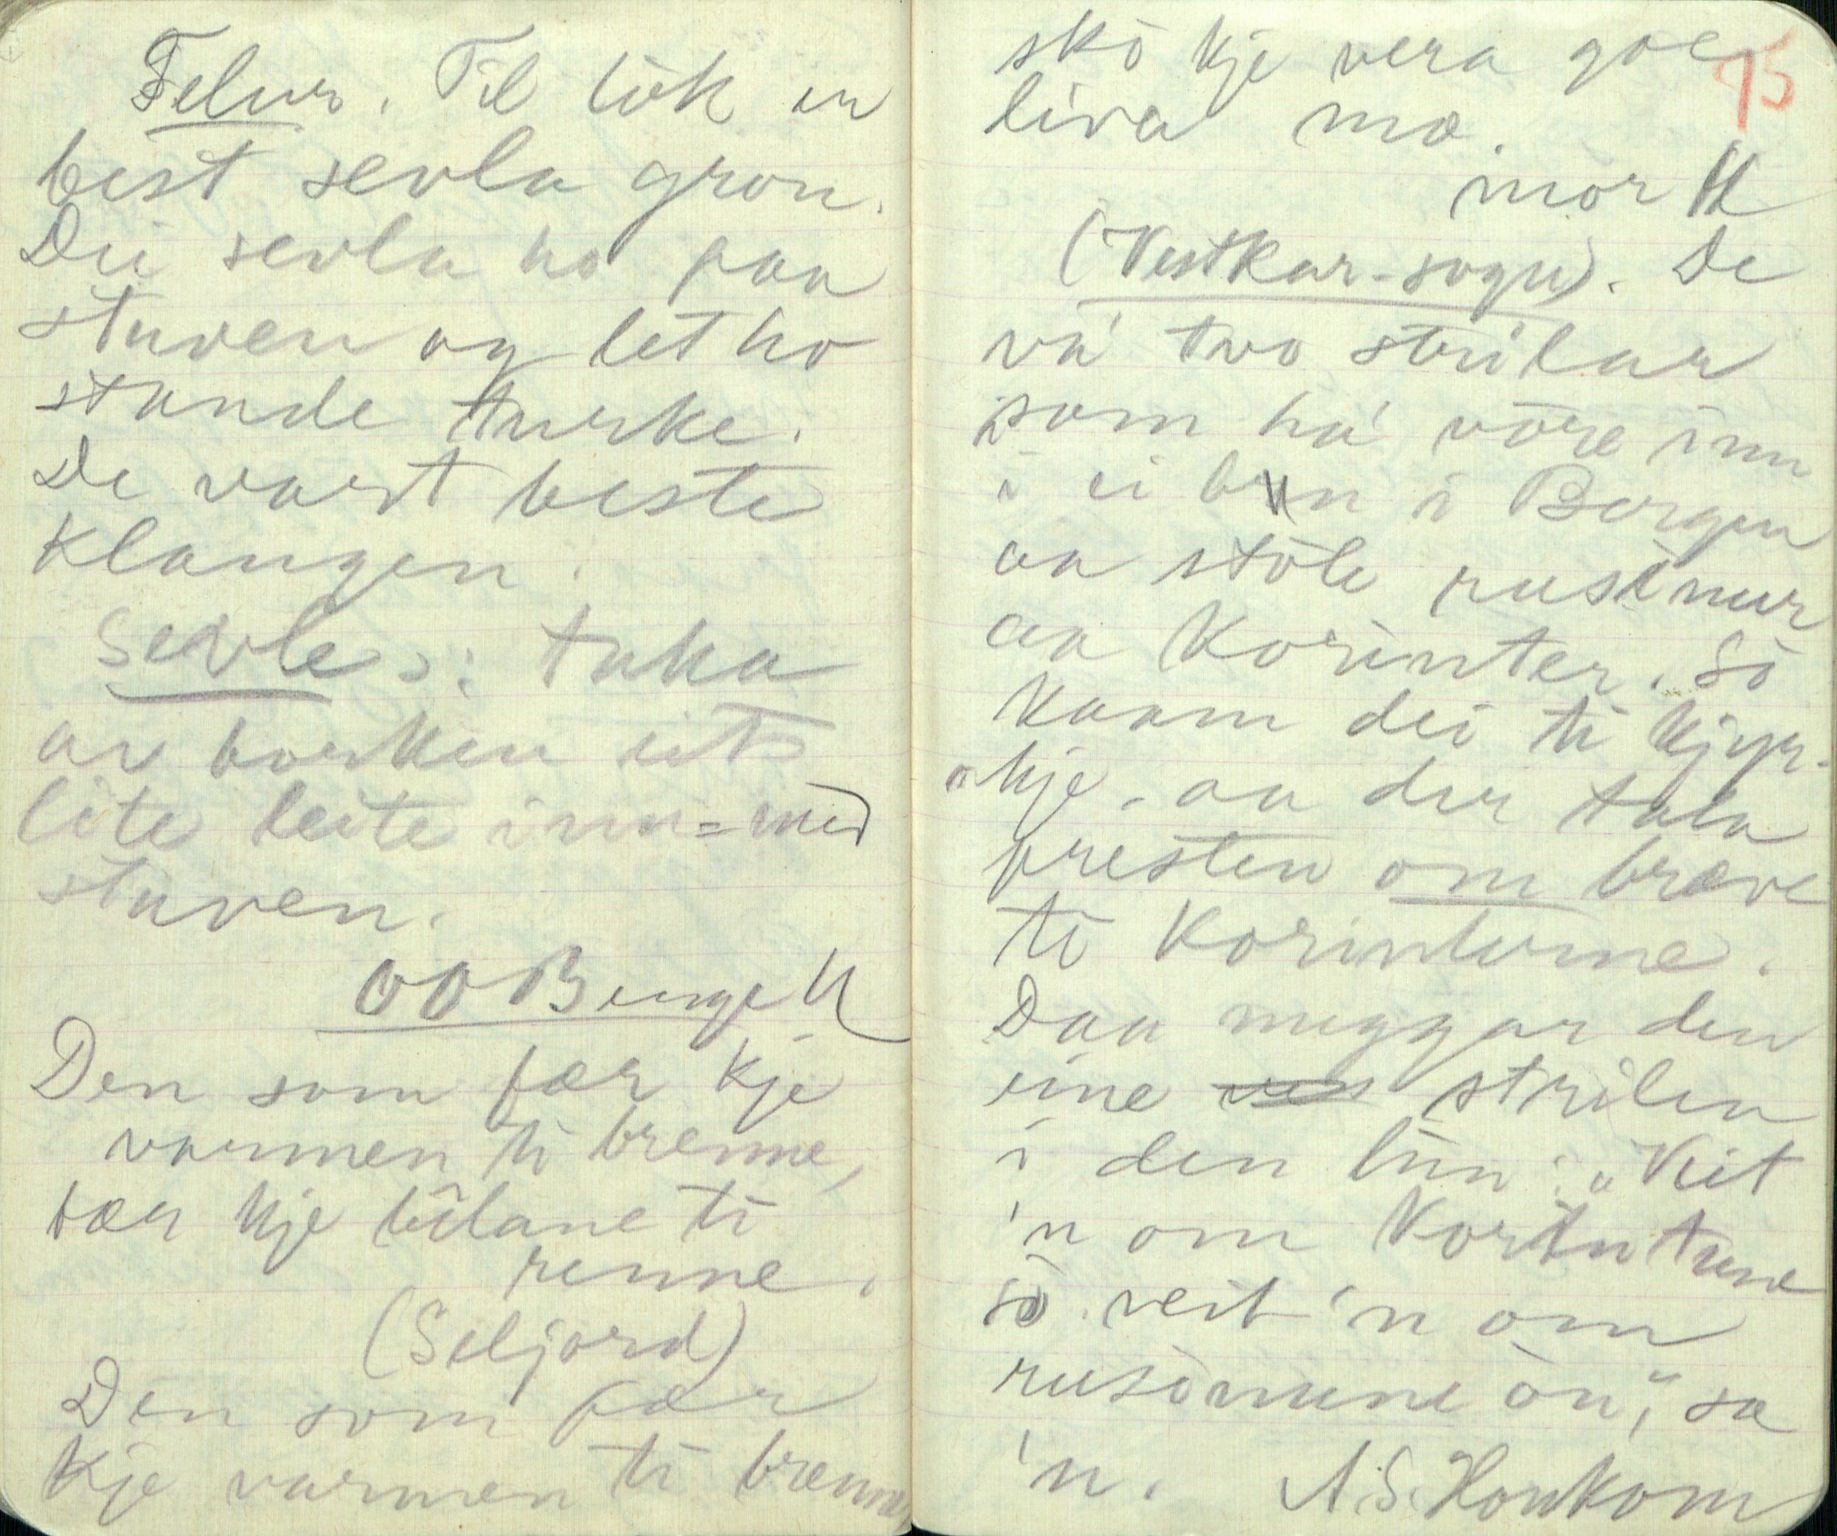 Felur. Til lok er
best sevla gron.
Dei sevla ho paa
stuven og let ho
stande turke.
De vart beste
klangen.
Sevle: taka
av borken eit
lite leite inn=med
stuven.
OO Bungel
Den som fær kje
varmen ti brenne,
fær kje bilane ti
renne.
(Seljord)
Den som fær
kje varmen ti brenne
75
sko kje vera goe
liva mæ.
mor H
(Vestkar-sogu). De
va' two strilar
som ha' vôre inn
i ei bun i Bergen
aa stôle rusinur
aa Korinter. Sô
kaam dei ti kjyr-
kje. aa der tala
presten om bræve
ti Korinturne.
Daa nuggar den
eine strilen
i den hin: "Veit
'n om Korintune
sô veit 'n om
rusinune ôu," sa
'n. A.S. Honkom